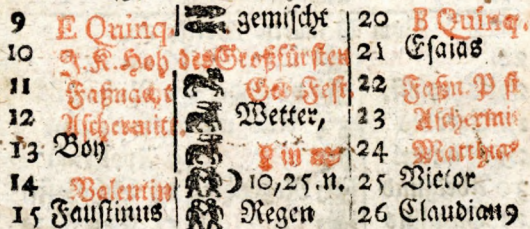 9 E Quinq. gemischt 20 B Quinq.
10 J. K. Hoh des Großfürsten 21 Esaias
11 Faßnacht Geb. Fest 22 Faßn. P st
12 Aschermitt. Wetter, 23 Aschermi
13 Boy 24 Matthias
14 Valentin ☽ 10,25.n. 25 Victor
15 Faustinus Regen 26 Claudian9